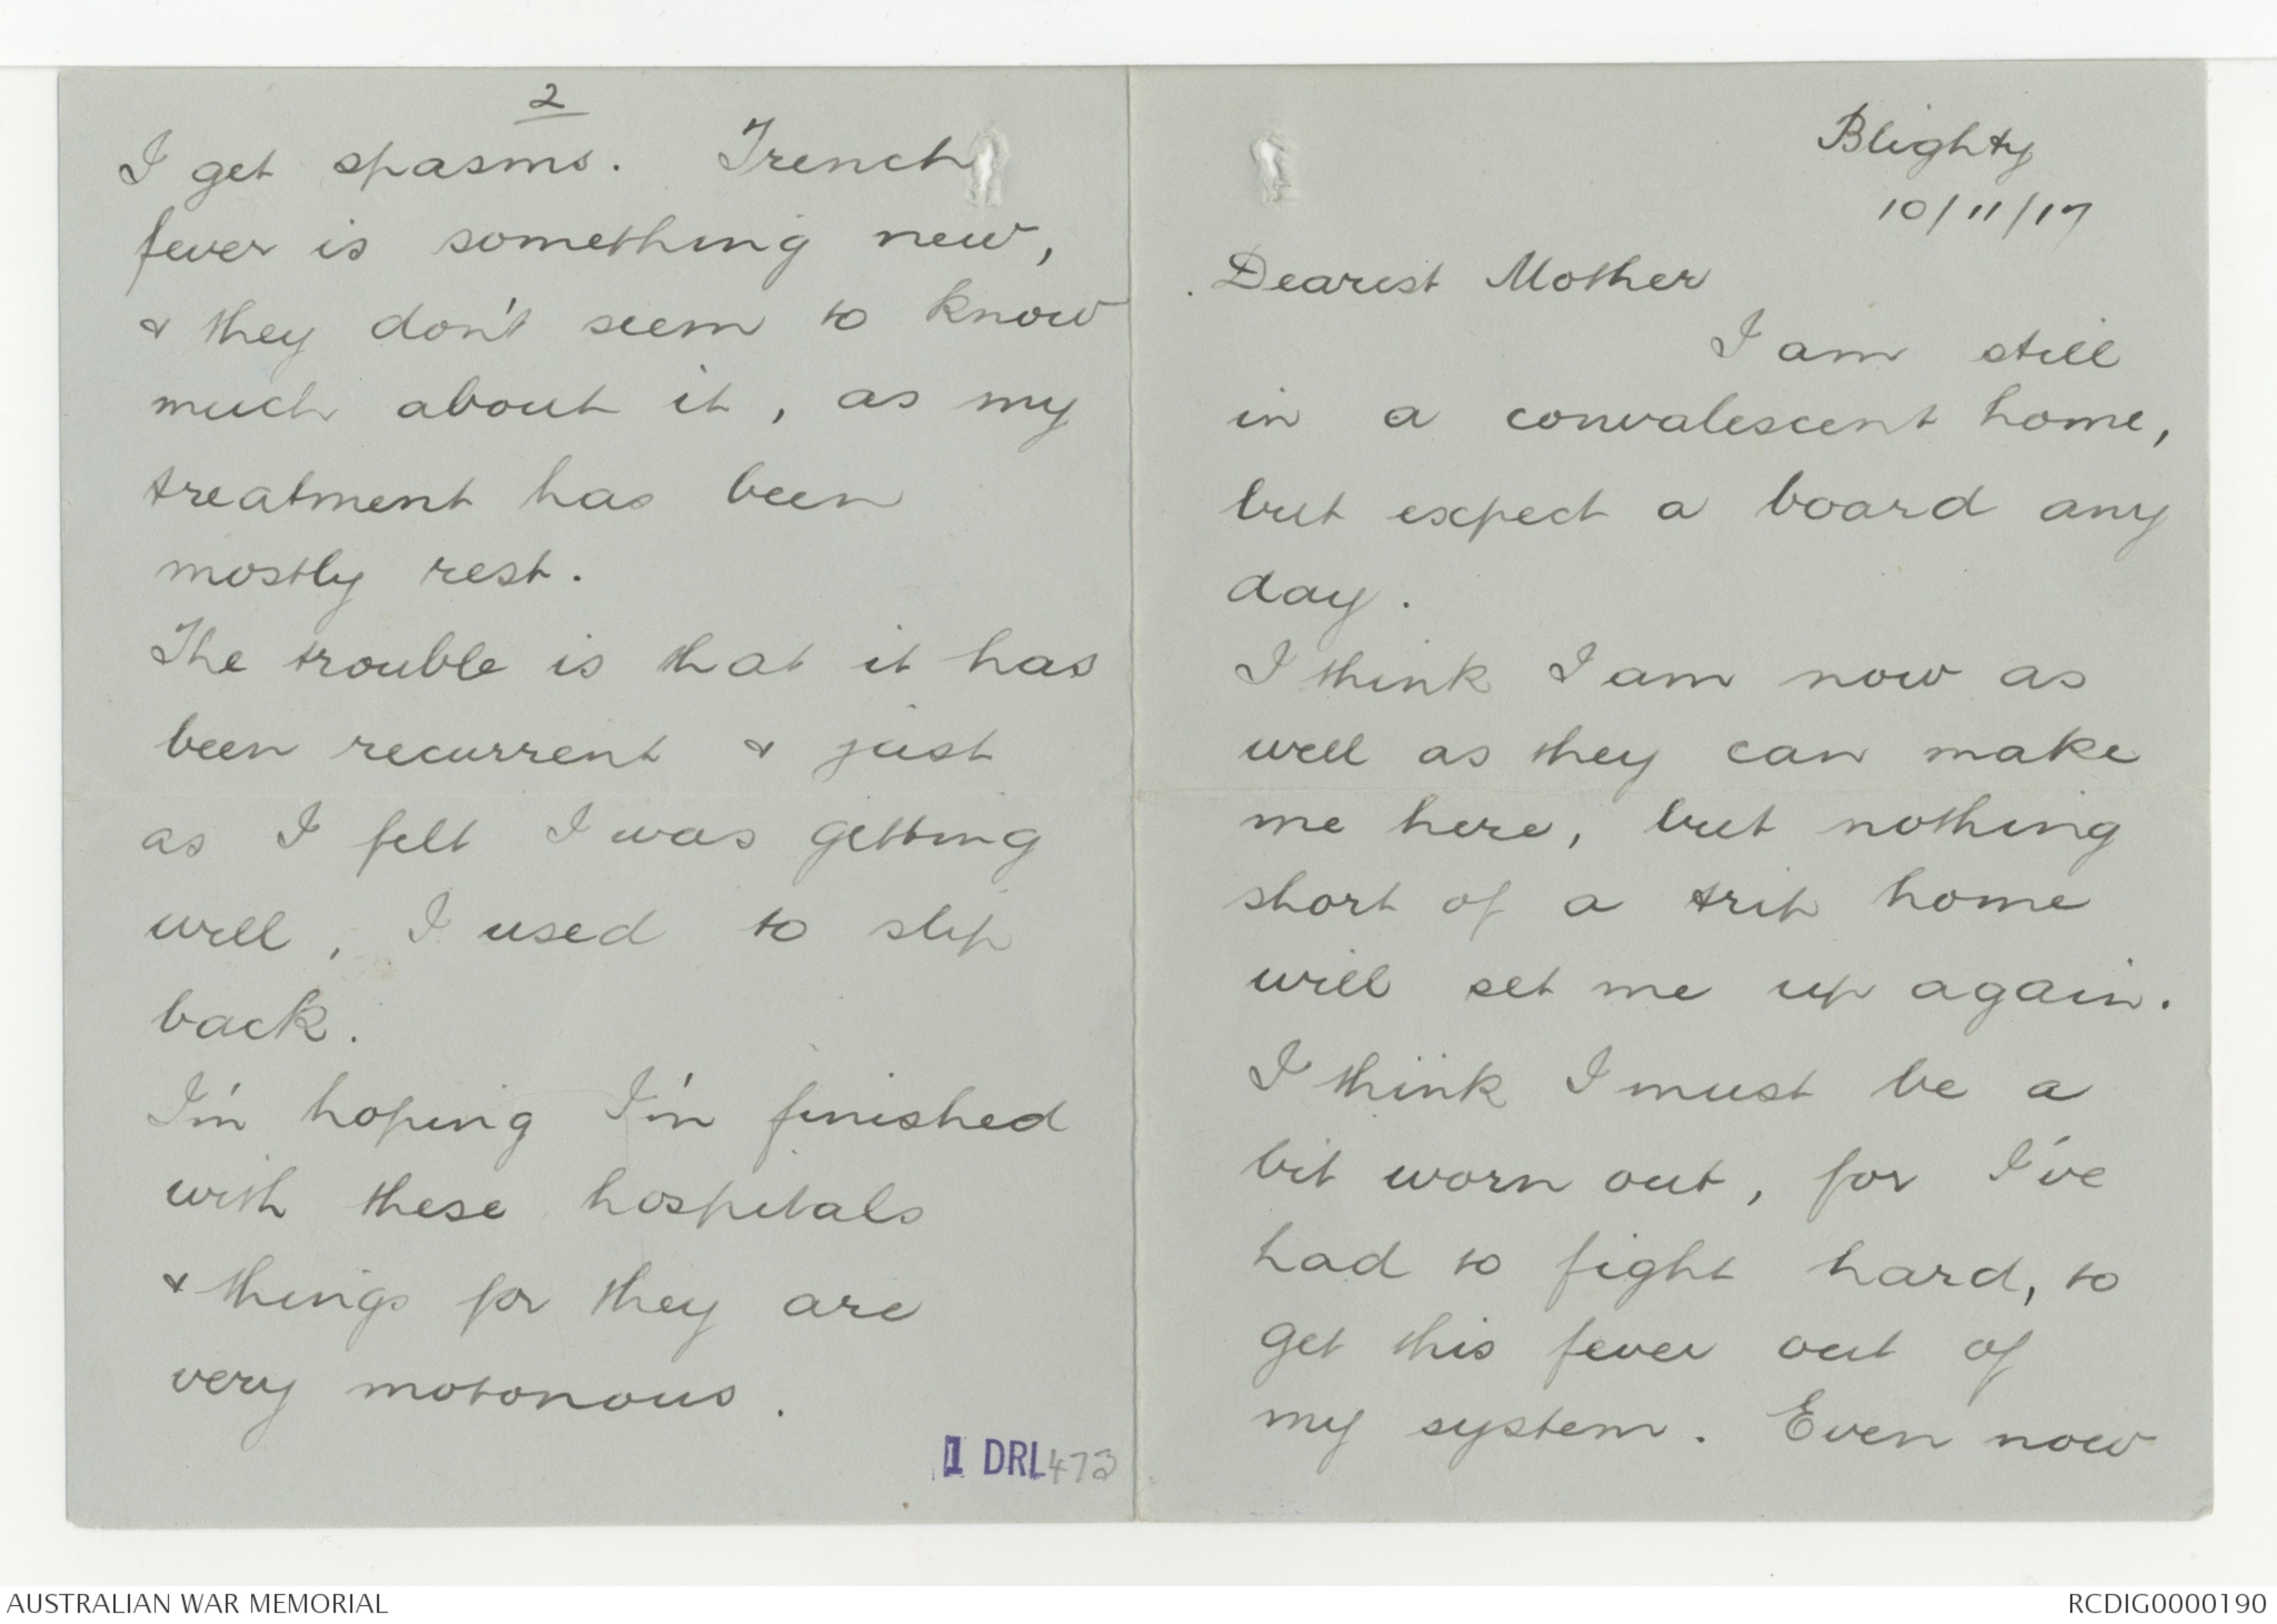 Blighty
10/11/17
Dearest Mother
I am still
in a convalescent home,
but expect a board any
day.
I think I am now as
well as they can make
me here, but nothing
short of a trip home
will set me up again.
I think I must be a
bit worn out, for I've
had to fight hard, to
get this fever out of
my system. Even now
2
I get spasms. Trench
fever is something new,
& they don't seem to know
much about it, as my
treatment has been
mostly rest.
The trouble is that it has
been recurrent & just
as I felt I was getting
well, I used to slip
back.
I'm hoping I'm finished
with these hospitals
& things for they are
very motonous.
1 DRL 473
AUSTRALIAN WAR MEMORIAL
RCDIG0000190